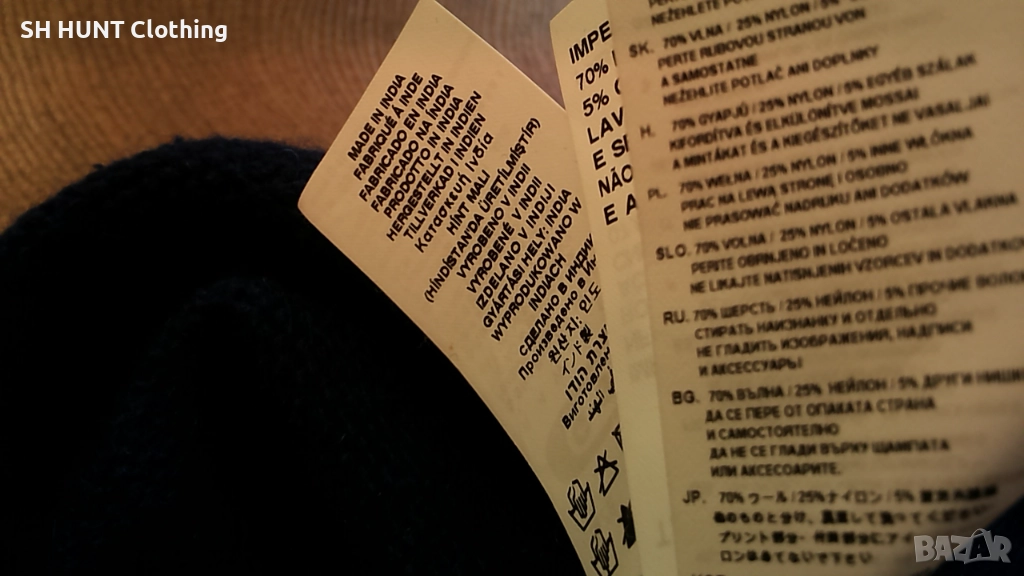 SH HUNT Clothing
MADE IN INDIA
FABRIQUÉ À INDE
FABRICADO EN INDIA
FABRICADO NA ÍNDIA
PRODOTTO IN INDIA
HERGESTELLT IN INDIEN
TILLVERKAD I INDIEN
Κατασκευή Ινδία
(HİNDİSTAN'DA ÜRETİLMİŞTİR)
HİNT MALI
VYROBENO V INDII
VYROBENÉ V INDII
IZDELANO V INDIJI
GYÁRTÁSI HELY: INDIA
WYPRODUKOWANO W
INDIACH
СДЕЛАНО В ИНДИИ
Произведено в
원산지: 인도
インド製
IMPE
70%
5%
LAV
E S
NÃO
E A
NEŽEHLETE POTI
SK. 70% VLNA / 25% NYLON / 5%
PERTE RUBOVOU STRANOU VON
A SAMOSTATNE
NEŽEHLITE POTLAČ ANI DOPLNKY
H. 70% GYAPJÚ / 25% NYLON / 5% EGYÉB SZÁLAK
KIFORDÍTVA ÉS ELKÜLÖNÍTVE MOSSA!
A MINTÁKAT ÉS A KIEGÉSZÍTŐKET NE VASALJA!
PL. 70% WEŁNA / 25% NYLON / 5% INNE WŁÓKNA
PRAĆ NA LEWĄ STRONĘ I OSOBNO
NIE PRASOWAĆ NADRUKU ANI DODATKÓW
SLO. 70% VOLNA / 25% NYLON / 5% OSTALA VLAKNA
PERITE OBRNJENO IN LOČENO
NE LIKAJTE NATISNJENIH VZORCEV IN DODATKOV
RU. 70% ШЕРСТЬ / 25% НЕЙЛОН / 5% ПРОЧИЕ ВОЛОК
СТИРАТЬ НАИЗНАНКУ И ОТДЕЛЬНО
НЕ ГЛАДИТЬ ИЗОБРАЖЕНИЯ, НАДПИСИ
И АКСЕССУАРЫ
BG. 70% ВЪЛНА / 25% НЕЙЛОН / 5% ДРУГИ НИШКИ
ДА СЕ ПЕРЕ ОТ ОПАКАТА СТРАНА
И САМОСТОЯТЕЛНО
ДА НЕ СЕ ГЛАДИ ВЪРХУ ЩАМПАТА
ИЛИ АКСЕСОАРИТЕ.
JP. 70% ウール / 25% ナイロン / 5%
プリント部分
BAZAR